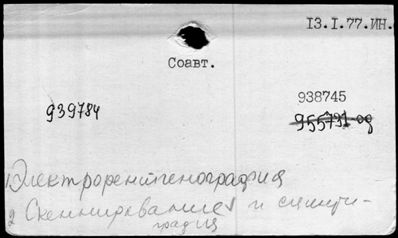 13.I.77.ИН.
Соавт.
938745
939784
955731 од
1) Электрорентгенография
2 Сканирование и сцинти-
графия